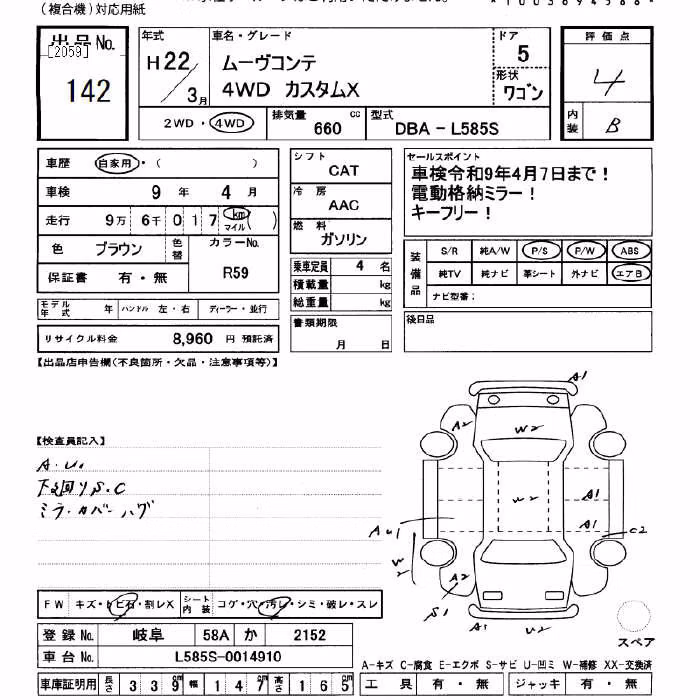 (複合機)対応用紙
出品No.
[2059]
142
年式
H22/3月
車名・グレード
ムーヴコンテ
4WD カスタムX
ドア
5
形状
ワゴン
評価点
4
内装
B
2WD・4WD
排気量 660 cc
型式 DBA-L585S
車歴 自家用・( )
車検 9年 4月
走行 9万 6千 0 1 7 km マイル ( )
色 ブラウン 色替 カラーNo.
R59
保証書 有・無
モデル年式 年 ハンドル 左・右 ディーラー・並行
リサイクル料金 8,960 円 預託済
シフト
CAT
冷房
AAC
燃料
ガソリン
乗車定員 4 名
積載量 kg
総重量 kg
書類期限
月 日
セールスポイント
車検令和9年4月7日まで!
電動格納ミラー!
キーフリー!
装備品
S/R 純A/W P/S P/W ABS
純TV 純ナビ 革シート 外ナビ エアB
ナビ型番:
後日品
【出品店申告欄(不良箇所・欠品・注意事項等)】
【検査員記入】
A・U.
下回りS.C
ミラーカバーハゲ
A1
A2
W2
W2
A1
A1
C2
AU1
W2
A2
S1
A1
U2
スペア
FW キズ・トビ石・割レX シート内装 コゲ・穴・汚レ・シミ・破レ・スレ
登録No. 岐阜 58A か 2152
車台No. L585S-0014910
車庫証明用 長さ 339cm 幅 147cm 高さ 165cm
A-キズ C-腐食 E-エクボ S-サビ U-凹ミ W-補修 XX-交換済
工具 有・無 ジャッキ 有・無